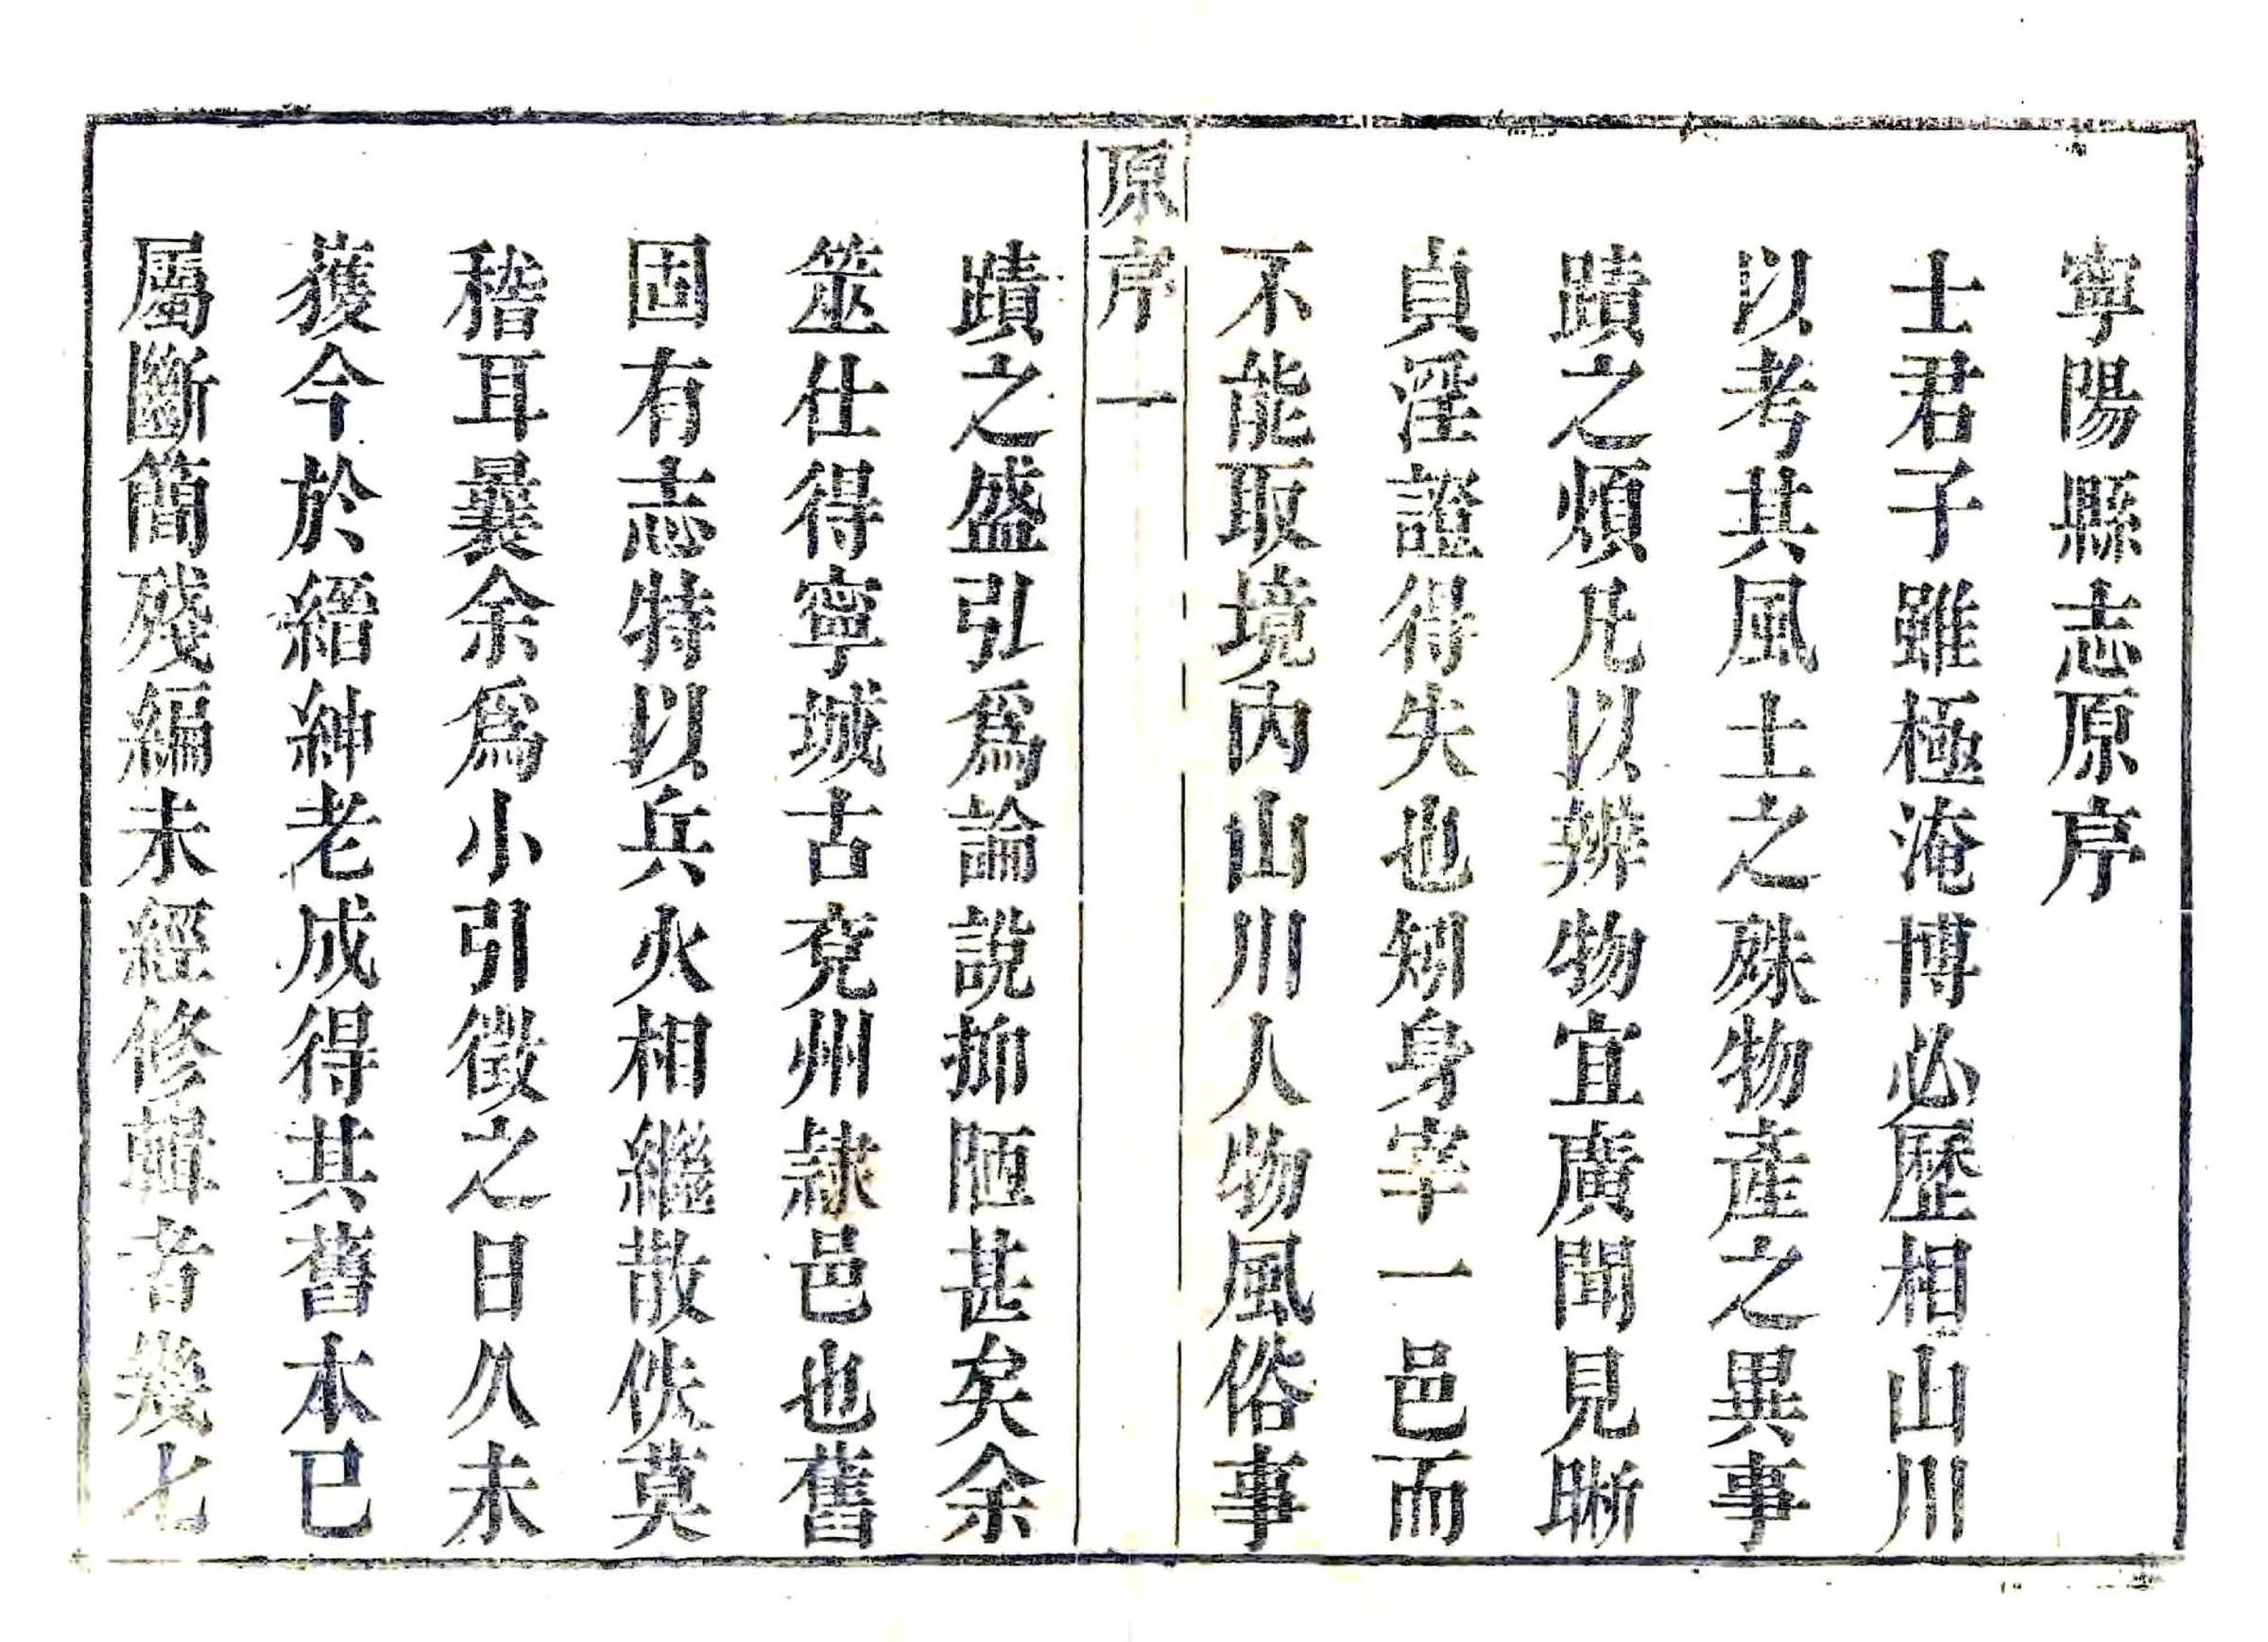 寧陽縣志原序
士君子雖極淹博必歷相山川
以考其風土之殊物產之異事
蹟之煩凡以辨物宜廣聞見晰
貞淫證得失也矧身宰一邑而
不能取境內山川人物風俗事
原序 一
蹟之盛引爲論說抑陋甚矣余
筮仕得寧城古兗州隸邑也舊
固有志特以兵火相繼散佚莫
稽耳曩余爲小引徵之日久未
獲今於縉紳老成得其舊本已
屬斷簡殘編未經修輯者幾七